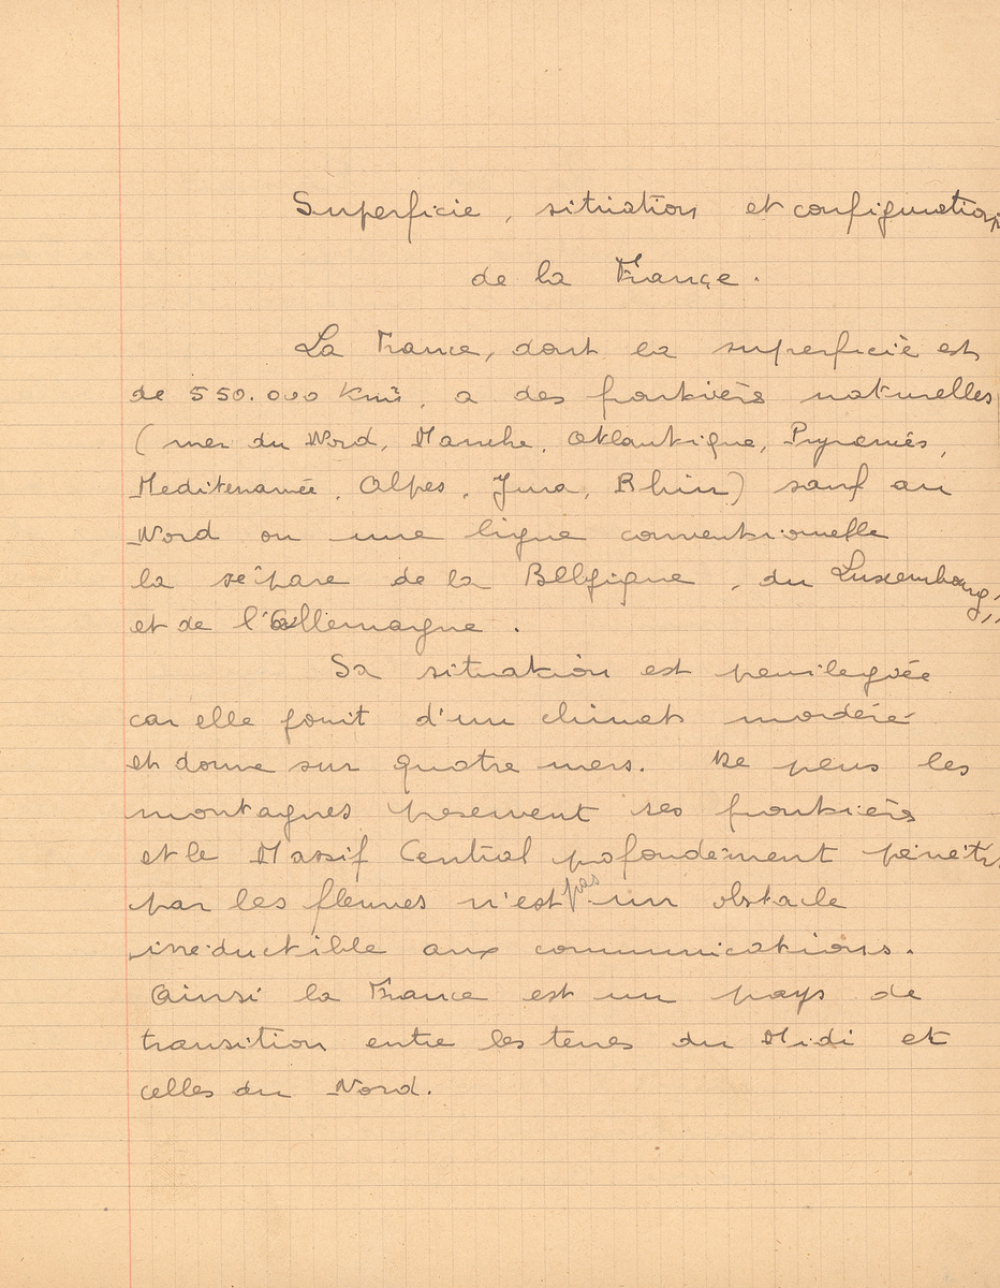 Superficie, situation et configuration
de la France.
La France, dont la superficie est
de 550.000 Km², a des frontières naturelles
(mer du Nord, Manche, Atlantique, Pyrenées,
Mediterranée, Alpes, Jura, Rhin) sauf au
Nord ou une ligne conventionnelle
la sépare de la Belgique, du Luxembourg,
et de l'Allemagne.
Sa situation est privilegiée
car elle jouit d'un climat modéré
et donne sur quatre mers. De plus les
montagnes preservent ses frontières
et le Massif Central profondément pénétré
par les fleuves n'est pas un obstacle
irréductible aux communications.
Ainsi la France est un pays de
transition entre les terres du Midi et
celles du Nord.